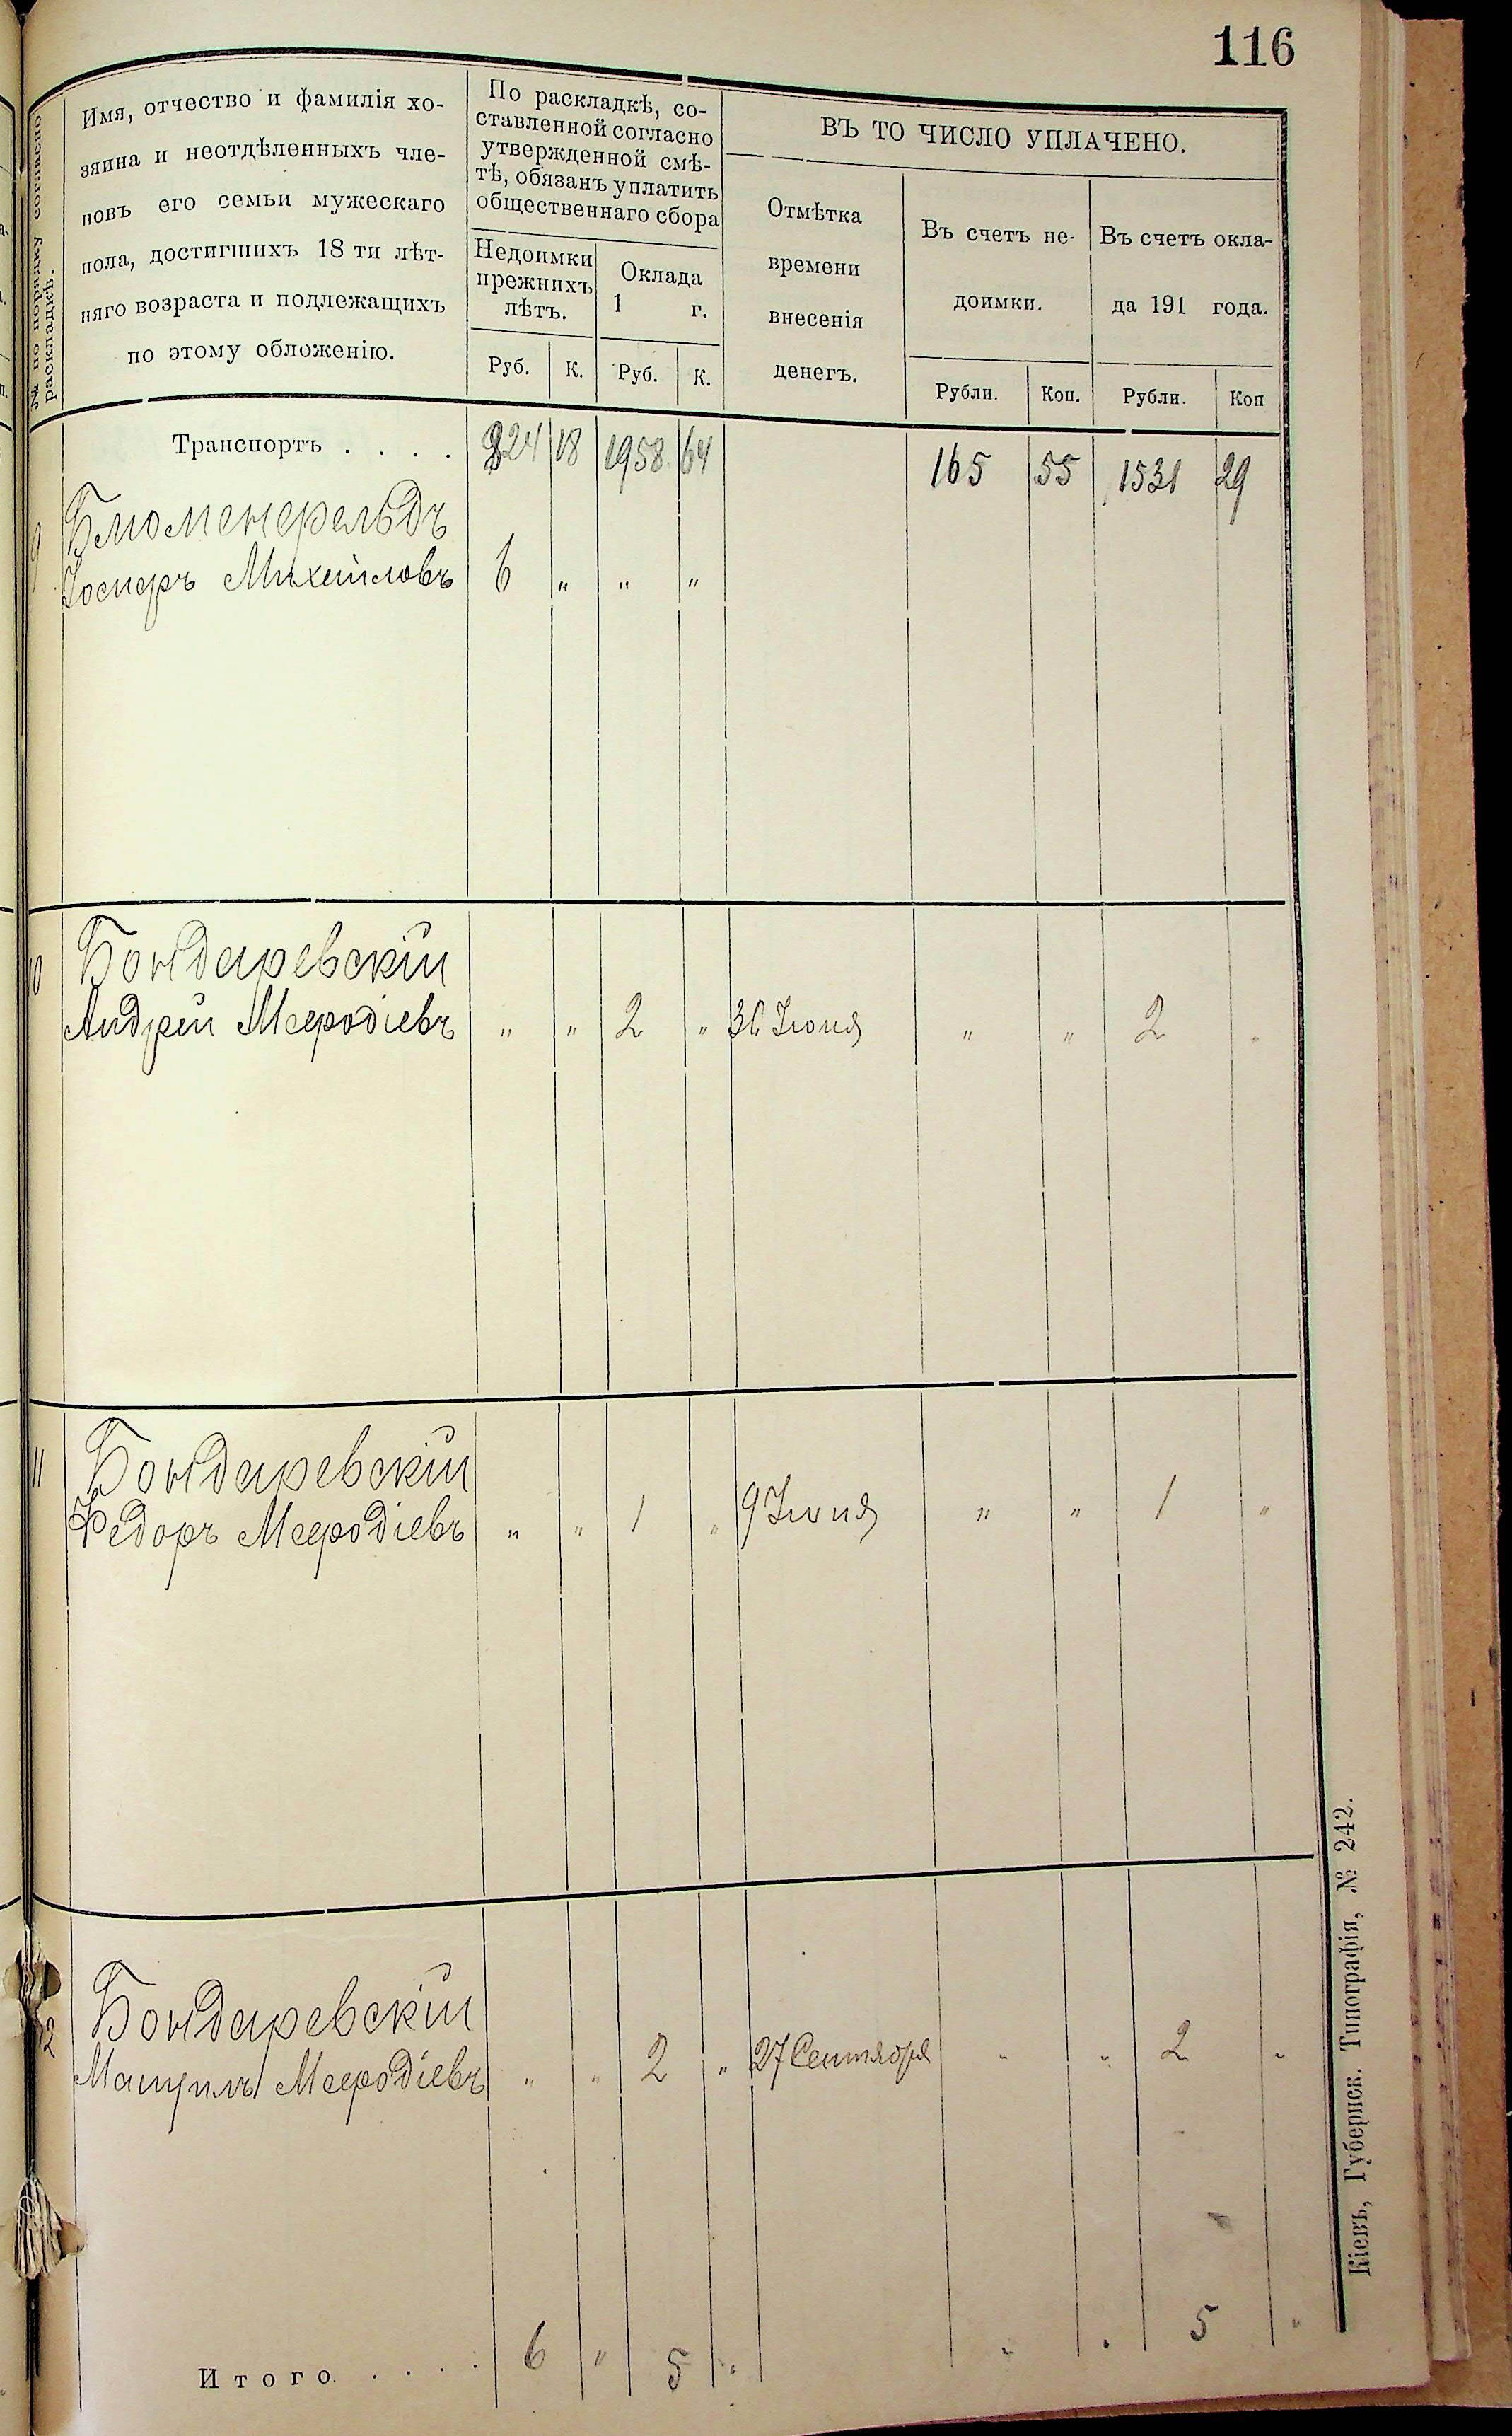 116
№ по порядку согласно
раскладкѣ.
Имя, отчество и фамилія хо-
зяина и неотдѣленныхъ чле-
новъ его семьи мужескаго
пола, достигшихъ 18 ти лѣт-
няго возраста и подлежащихъ
по этому обложенію.
По раскладкѣ, со-
ставленной согласно
утвержденной смѣ-
тѣ, обязанъ уплатить
общественнаго сбора
Недоимки
прежнихъ
лѣтъ.
Оклада
1 г.
Руб. К. Руб. К.
ВЪ ТО ЧИСЛО УПЛАЧЕНО.
Отмѣтка
времени
внесенія
денегъ.
Въ счетъ не-
доимки.
Въ счетъ окла-
да 191 года.
Рубли. Коп. Рубли. Коп
Транспортъ . . . . 324 18 1958 64 165 55 1531 29
9 Блюменфельдъ
Іосифъ Михайловъ 6 „ „ „
10 Бондаревскій
Андрей Меѳодіевъ „ „ 2 „ 30 Іюня „ „ 2 „
11 Бондаревскій
Федоръ Меѳодіевъ „ „ 1 „ 9 Іюня „ „ 1 „
12 Бондаревскій
Меѳодіевъ „ „ 2 „ 27 Сентября „ „ 2 „
Итого. . . . . 6 „ 5 „ „ „ 5 „
Кіевъ, Губернск. Типографія, № 242.